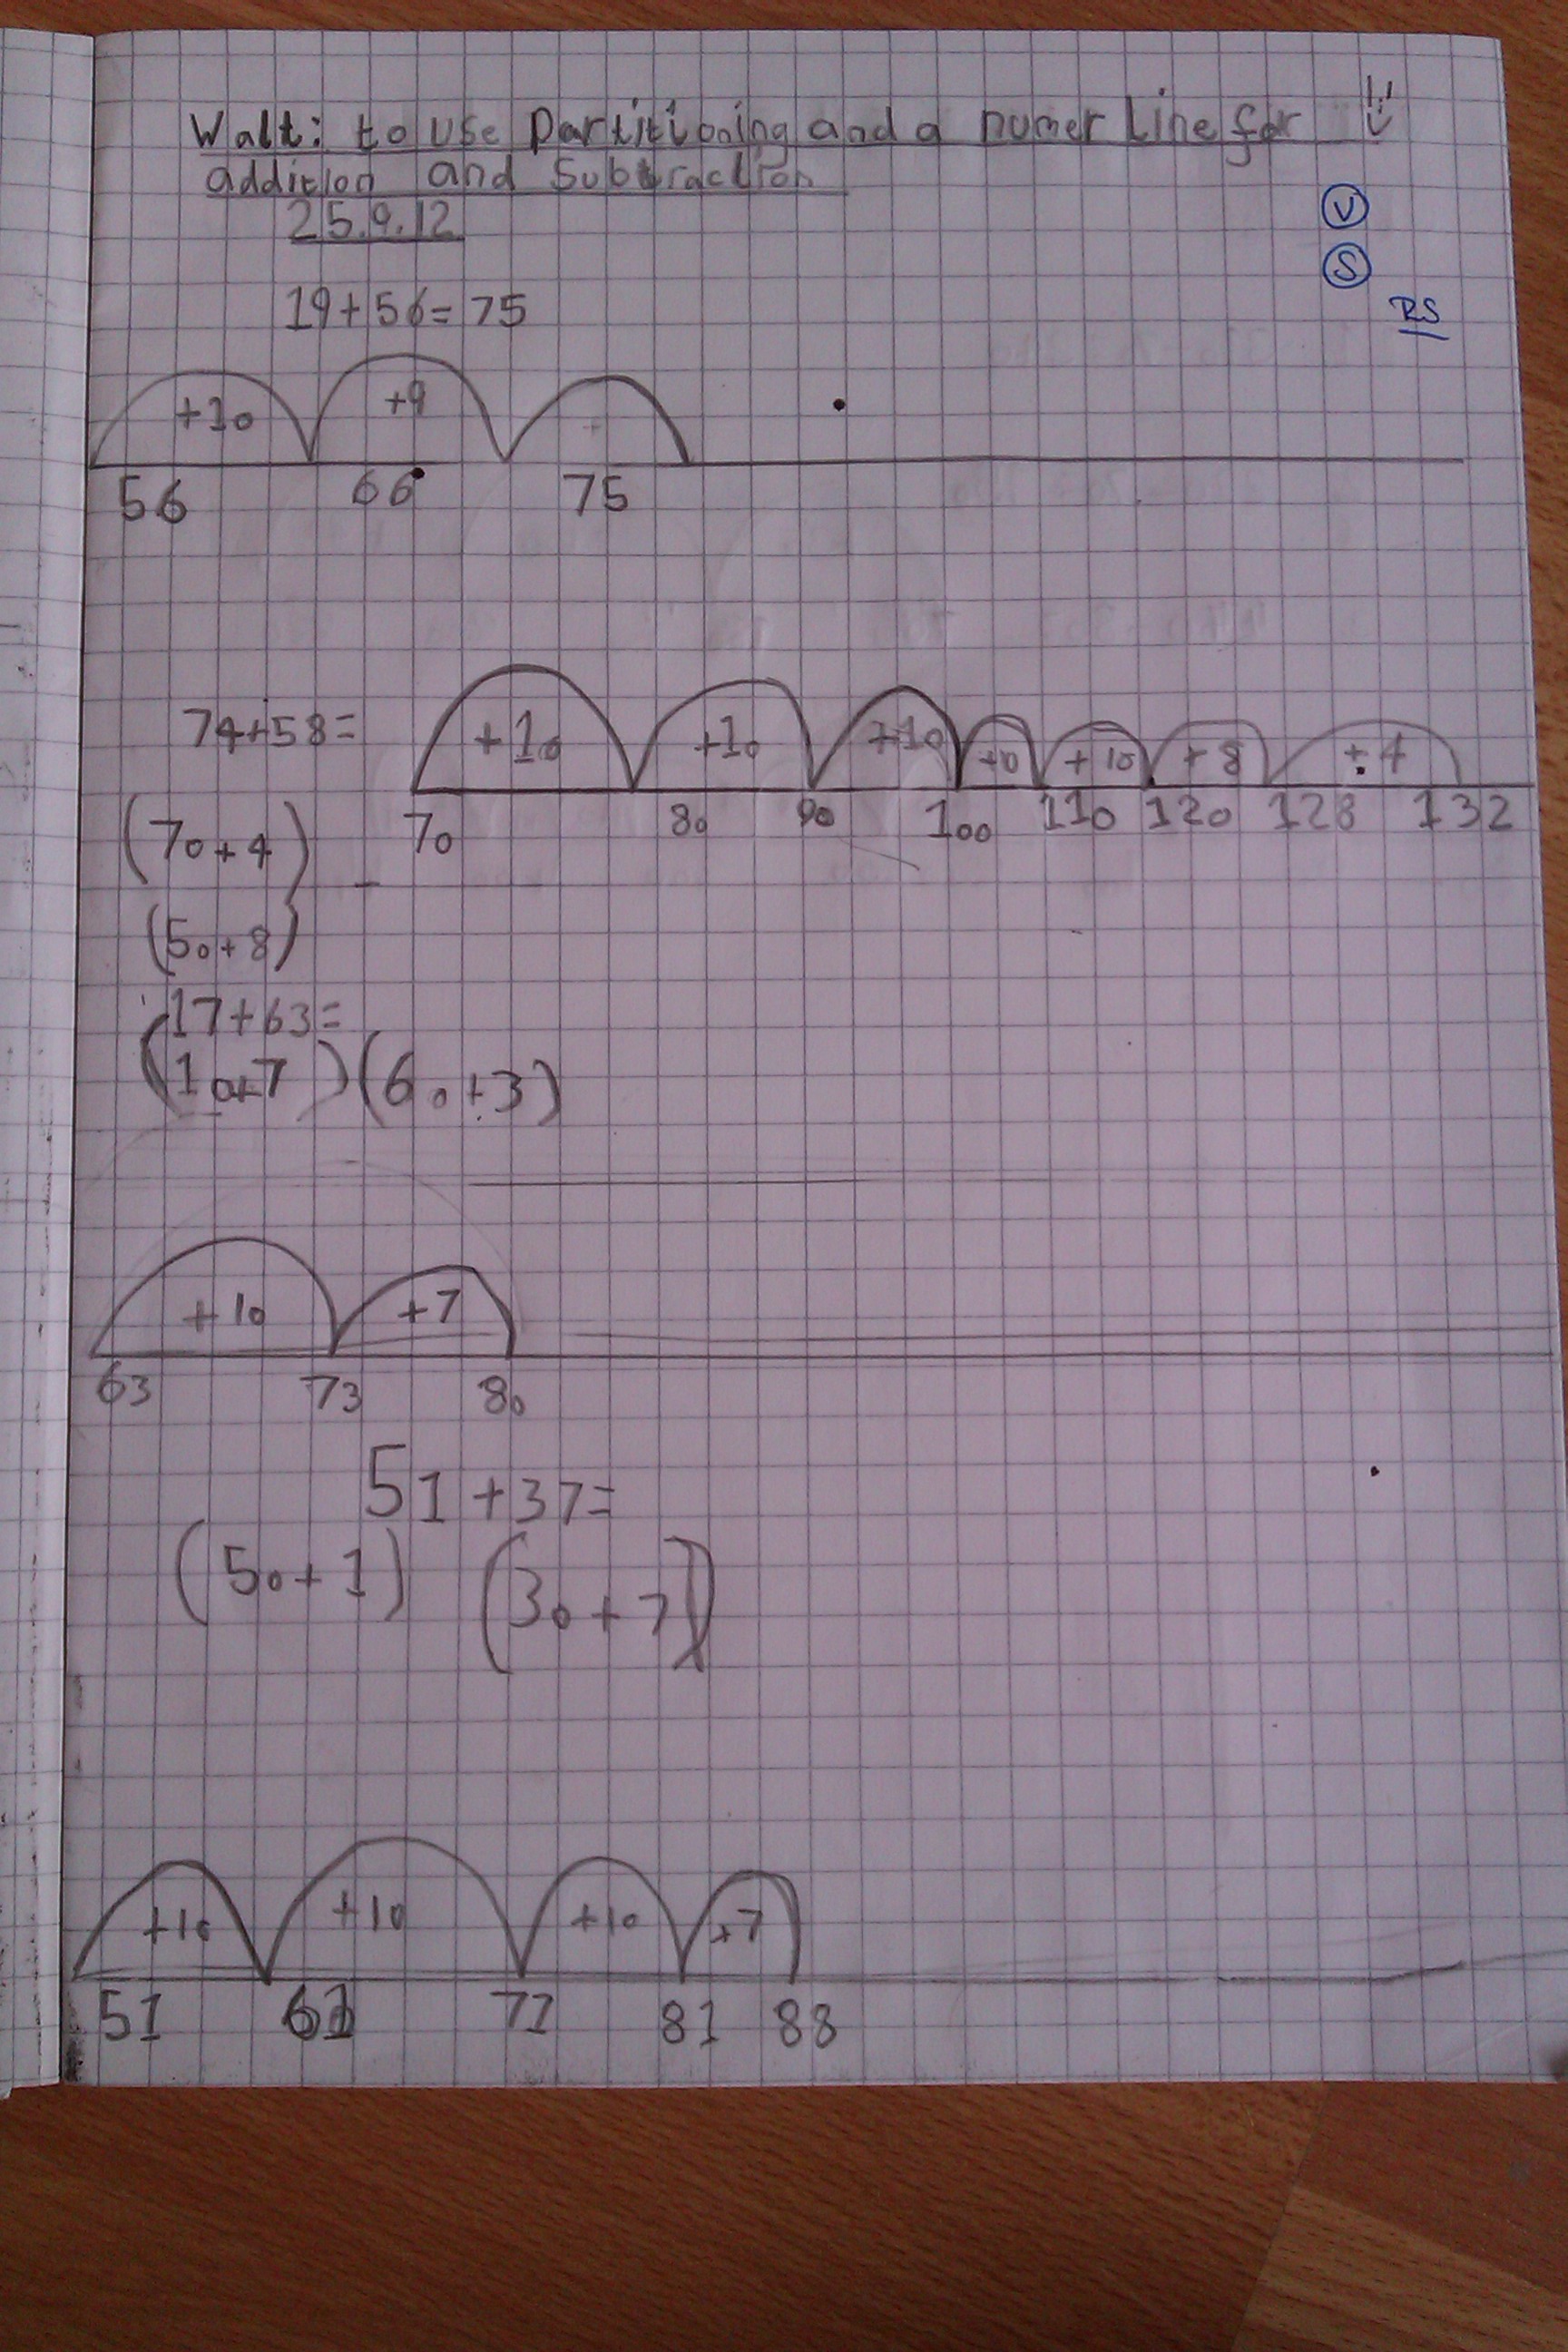 Walt: to use Partitioning and a numer Line for
addition and Subtraction
25.9.12
V
S
RS
19+56=75
+10 +9
56 66 75
74+58=
+10 +10 +10 +10 +10 +8 +4
70 80 90 100 110 120 128 132
(70+4)
(50+8)
17+63=
(10+7) (60+3)
+10 +7
63 73 80
51+37=
(50+1) (30+7)
+10 +10 +10 +7
51 61 71 81 88